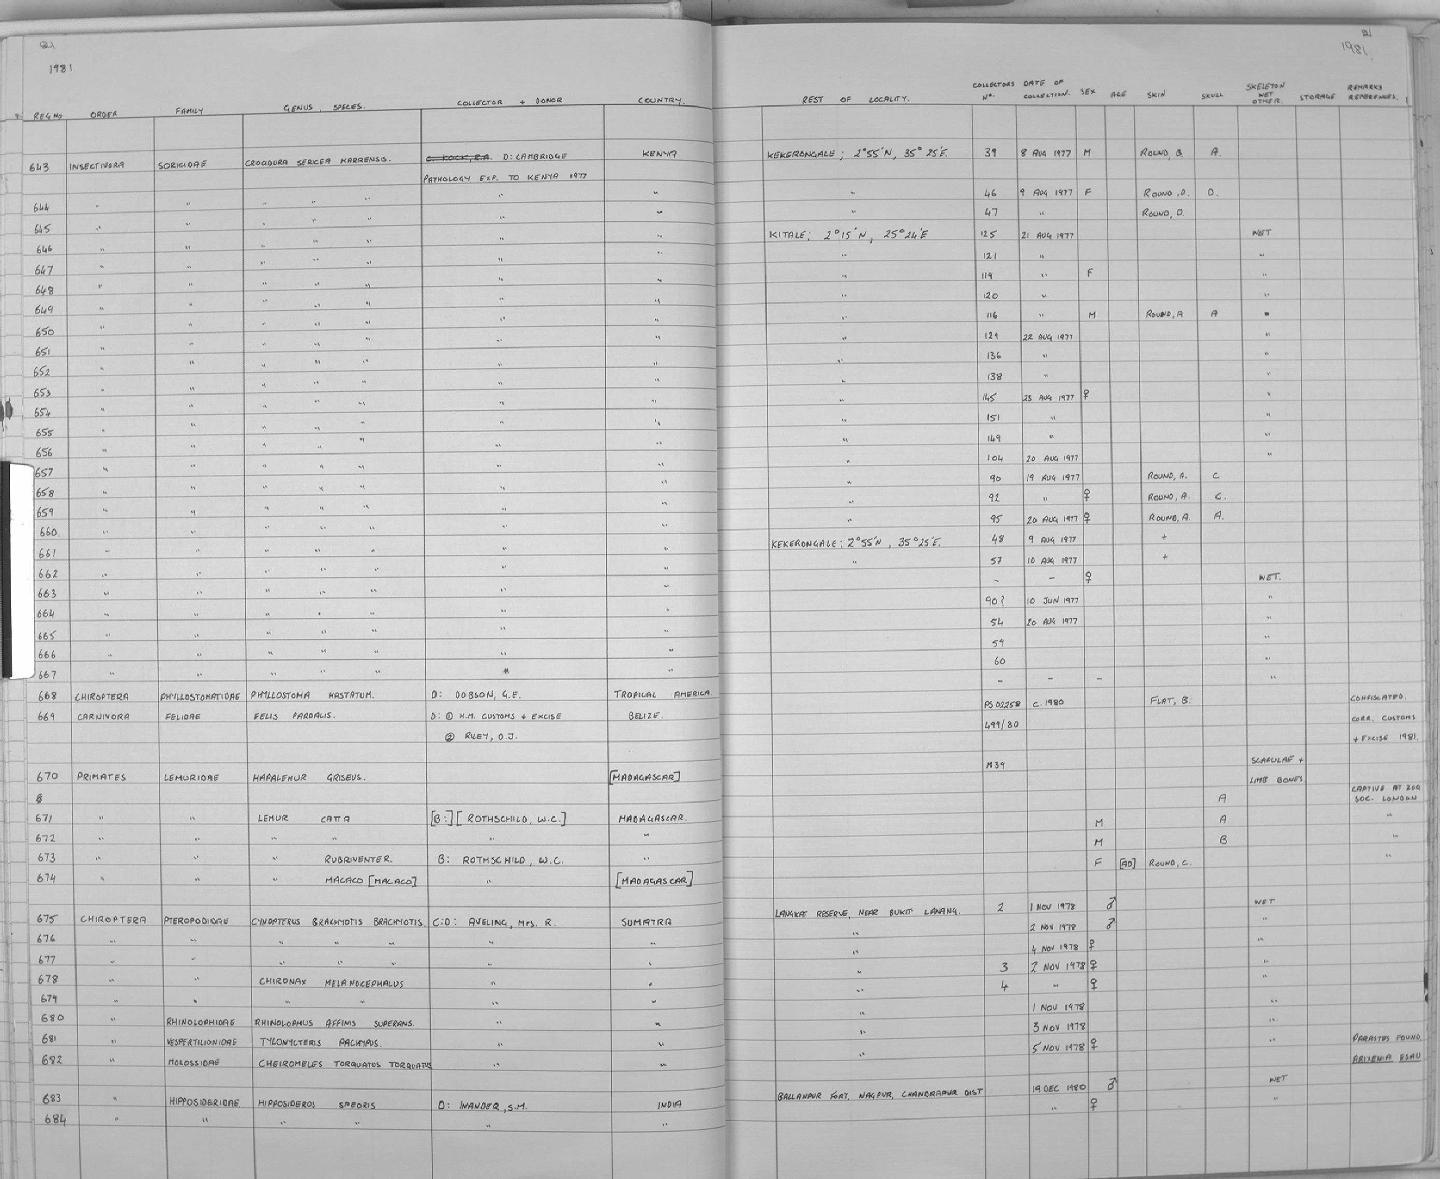 1981
1981
REG NO ORDER FAMILY GENUS SPECIES. COLLECTOR + DONOR COUNTRY. REST OF LOCALITY. COLLECTORS Nº. DATE OF COLLECTION. SEX AGE SKIN SKULL SKELETON WET OTHER. STORAGE REMARKS REFERENCES.
643 INSECTIVORA SORICIDAE CROCIDURA SERICEA MARRENSIS. D: CAMBRIDGE KENYA KEKERONGALE; 2°55'N, 35°25'E. 39 8 AUG 1977 M ROUND, B. A.
PATHOLOGY EXP. TO KENYA 1977
644 " " " " " " " " 46 9 AUG 1977 F ROUND, D. D.
645 " " " " " " " " 47 " ROUND, D.
646 " " " " " " " KITALE; 2°15'N, 25°24'E 125 21 AUG 1977 WET
647 " " " " " " " " 121 " "
648 " " " " " " " " 119 " F "
649 " " " " " " " " 120 " "
650 " " " " " " " " 116 " M ROUND, A A "
651 " " " " " " " " 129 22 AUG 1977 "
652 " " " " " " " " 136 " "
653 " " " " " " " " 138 " "
654 " " " " " " " " 145 23 AUG 1977 ♀ "
655 " " " " " " " " 151 " "
656 " " " " " " " " 149 " "
657 " " " " " " " " 104 20 AUG 1977 "
658 " " " " " " " " 90 19 AUG 1977 ROUND, A. C
659 " " " " " " " " 92 " ♀ ROUND, A. C.
660 " " " " " " " " 95 20 AUG 1977 ♀ ROUND, A. A.
661 " " " " " " " KEKERONGALE; 2°55'N, 35°25'E. 48 9 AUG 1977 +
662 " " " " " " " " 57 10 AUG 1977 +
663 " " " " " " " - - ♀ WET.
664 " " " " " " " 90? 10 JUN 1977 "
665 " " " " " " " 54 20 AUG 1977 "
666 " " " " " " " 59 "
667 " " " " " " 60 "
- - - "
668 CHIROPTERA PHYLLOSTOMATIDAE PHYLLOSTOMA HASTATUM. D: DOBSON, G.E. TROPICAL AMERICA.
669 CARNIVORA FELIDAE FELIS PARDALIS. D: ① H.M. CUSTOMS + EXCISE BELIZE. PS 02258 C. 1980 FLAT, B. CONFISCATED.
② RILEY, O.J. 499/80 CORR. CUSTOMS
+ EXCISE 1981.
670 PRIMATES LEMURIDAE HAPALEMUR GRISEUS. [MADAGASCAR] M39 SCAPULAE +
LIMB BONES
671 " " LEMUR CATTA [B:] [ROTHSCHILD, W.C.] MADAGASCAR. A CAPTIVE AT ZOO SOC. LONDON
672 " " " " " " M A "
673 " " " RUBRIVENTER. B: ROTHSCHILD, W.C. " M B "
674 " " " MACACO [MACACO] " [MADAGASCAR] F [AD] ROUND, C. "
675 CHIROPTERA PTEROPODIDAE CYNOPTERUS BRACHYOTIS BRACHYOTIS. C:D: AVELING, Mrs. R. SUMATRA LANGKAT RESERVE, NEAR BUKIT LAWANG. 2 1 NOV 1978 ♂ WET
676 " " " " " " " " 2 NOV 1978 ♂ "
677 " " " " " " " " 4 NOV 1978 ♀ "
678 " " CHIRONAX MELANOCEPHALUS " " " 3 2 NOV 1978 ♀ "
679 " " " " " " " 4 " ♀ "
680 " RHINOLOPHIDAE RHINOLOPHUS AFFINIS SUPERANS. " " " 1 NOV 1978 "
681 " VESPERTILIONIDAE TYLONYCTERIS PACHYPUS. " " " 3 NOV 1978 "
682 " MOLOSSIDAE CHEIROMELES TORQUATUS TORQUATUS " " " 5 NOV 1978 ♀ " PARASITES FOUND
ARIXENIA ESAU
683 " HIPPOSIDERIDAE HIPPOSIDEROS SPEORIS D: INANDER, S.M. INDIA BALLANPUR FORT, NAGPUR, CHANDRAPUR DIST 19 DEC 1980 ♂ WET
684 " " " " " " " ♀ "